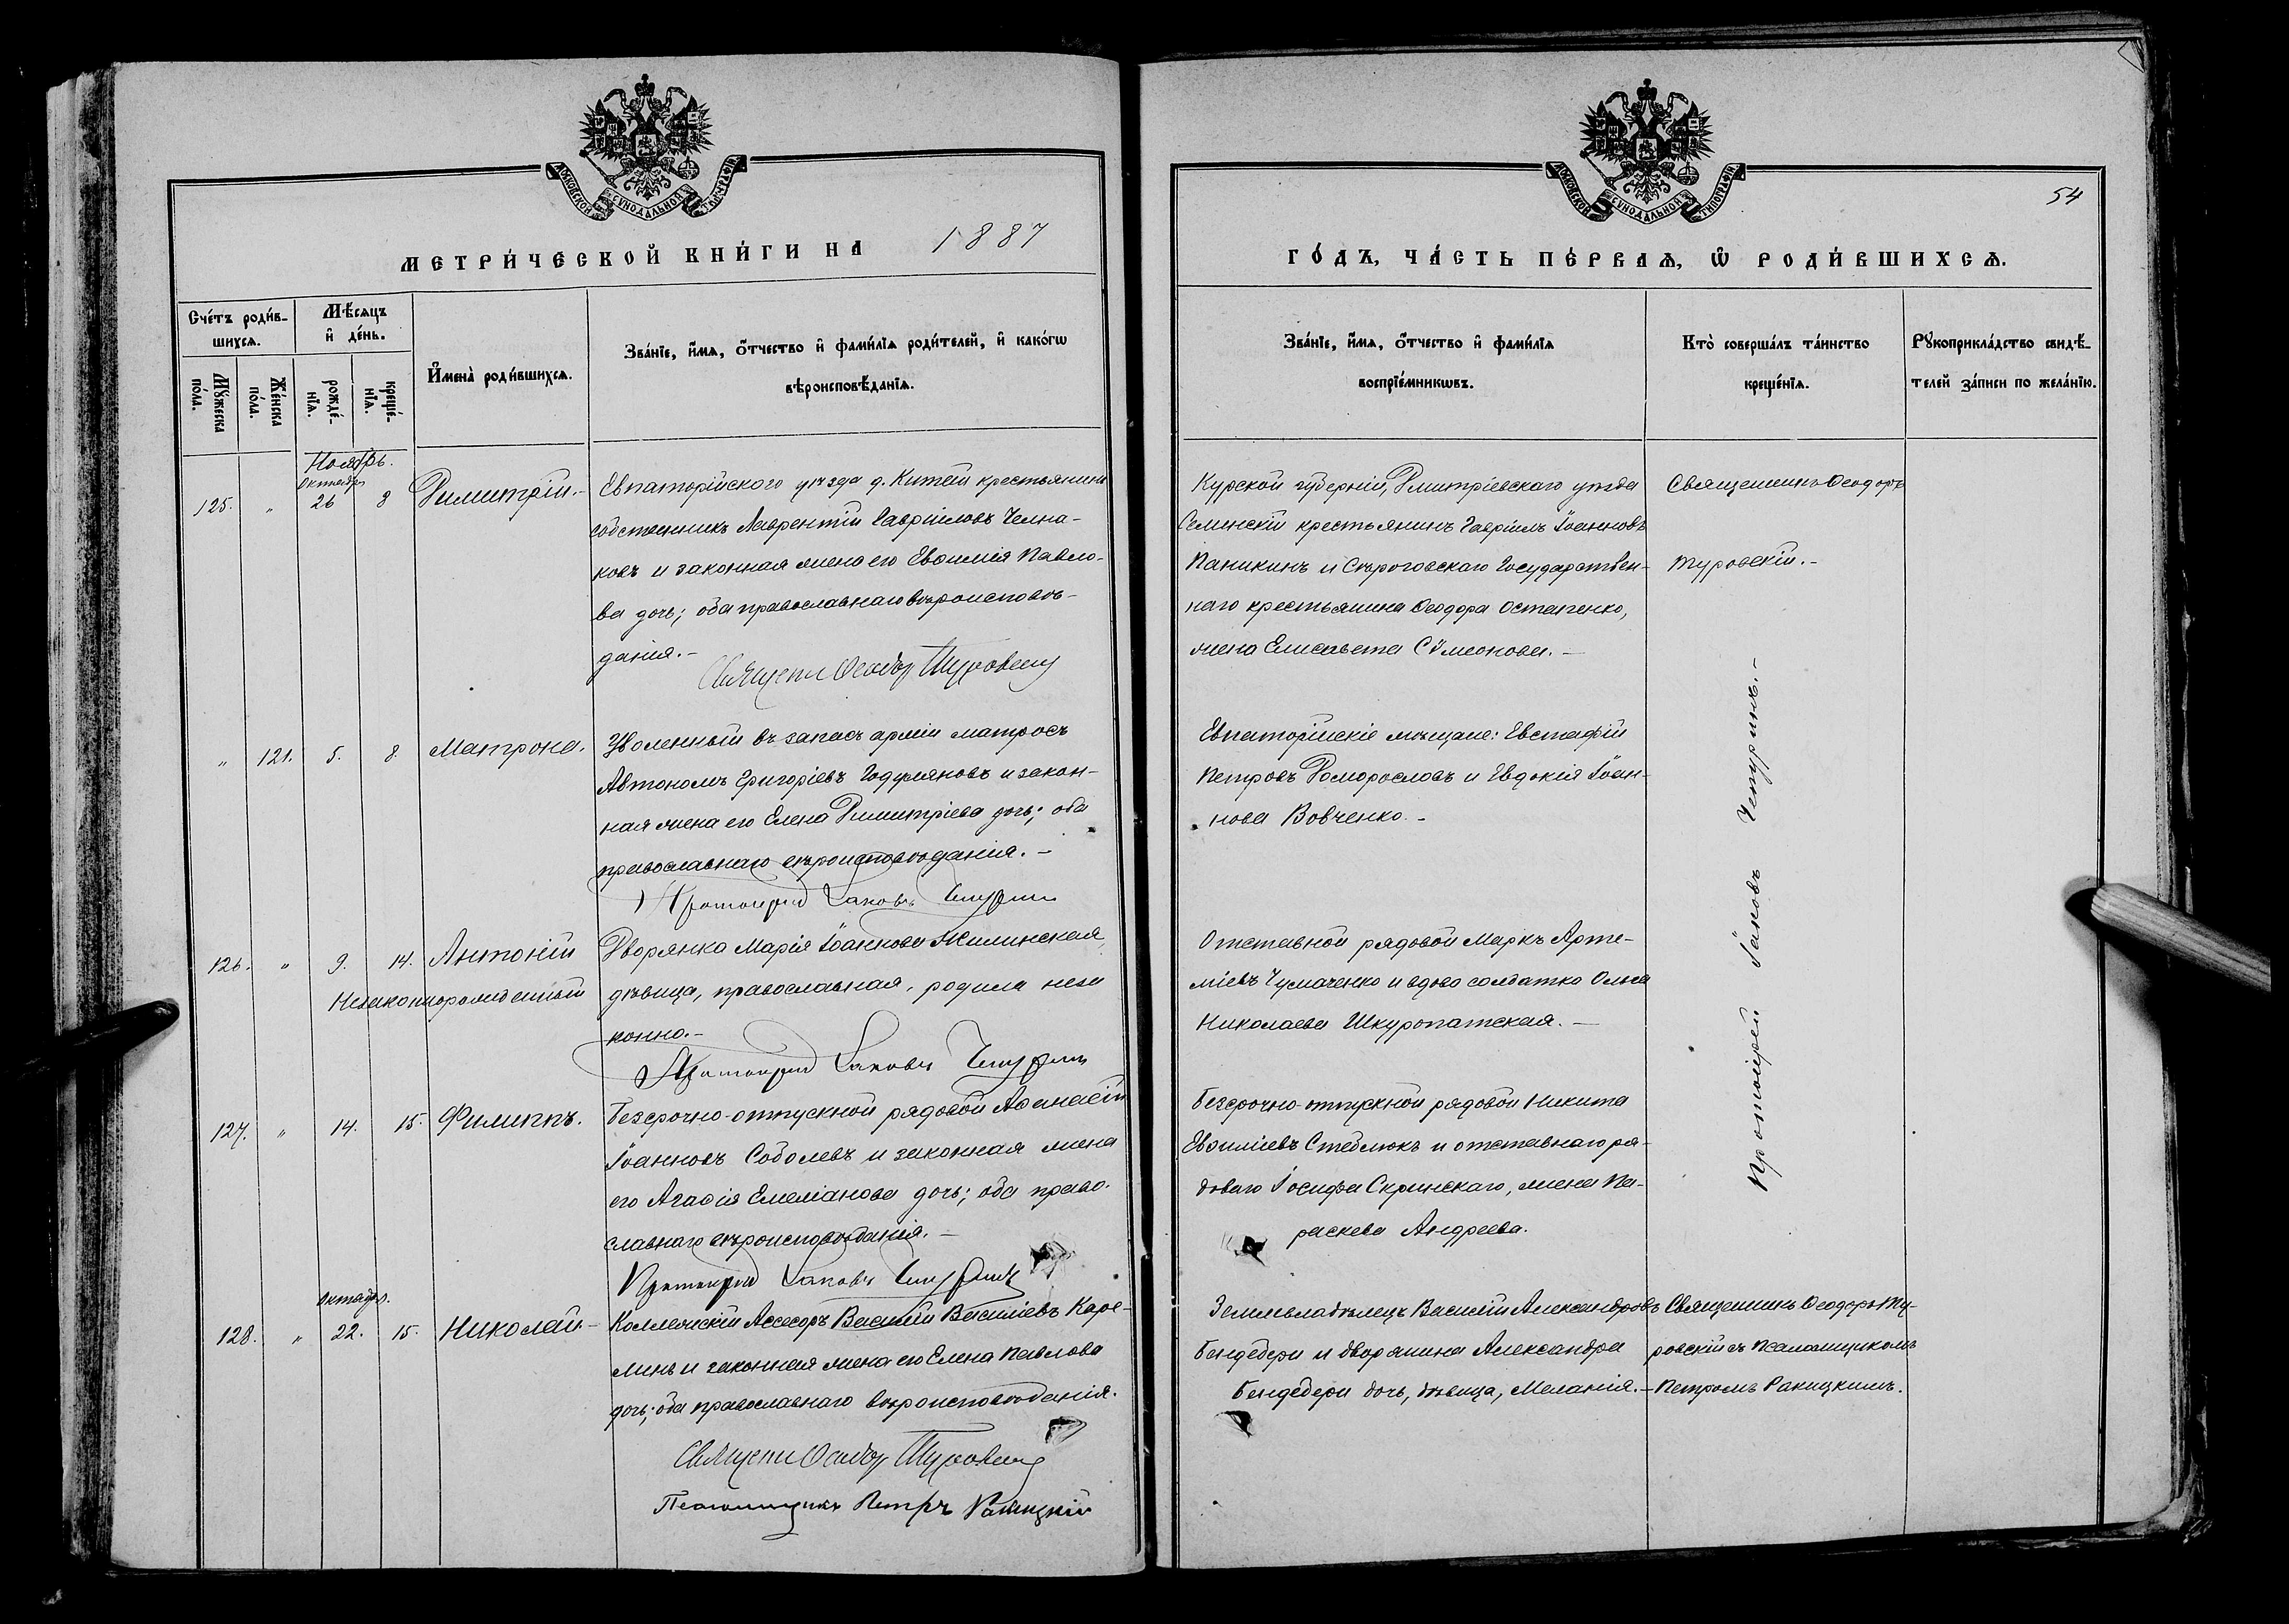 МОСКОВСКОЙ СѴНОДАЛЬНОЙ ТИПОГРАФІИ
МЕТРИ́ЧЕСКОЙ КНИ́ГИ НА 1887
Сче́тъ роди́в-
шихсѧ.
Мѣ́сѧцъ
и҆ де́нь.
Мꙋ́жеска по́ла.
Же́нска по́ла.
рожде́-нїѧ.
креще́-нїѧ.
И҆мена̀ роди́вшихсѧ.
Зва́нїе, и҆́мѧ, ѻ҆́тчество и҆ фами́лїѧ роди́телей, и҆ како́гѡ
вѣроисповѣ́данїѧ.
Ноябрь.
Октября
125. " 26 8 Димитрій.-
Евпаторійского уѣзда д. Китей крестьянинъ
собственникъ Лаврентій Гавріиловъ Челна-
ковъ и законная жена его Евѳимія Павло-
ва дочь; оба православнаго вѣроисповѣ-
данія.-
Священ Ѳеодор Туровскій
" 121. 5. 8. Матрона.
Уволенный въ запасъ арміи матросъ
Автономъ Григоріевъ и закон-
ная жена его Елена Димитріева дочь; оба
православнаго вѣроисповѣданія.-
Протоіерей Іаковъ Чепуринъ
126. " 9. 14. Антоній
Незаконнорожденный
Дворянка Марія Іоаннова Жилинская,
дѣвица, православная, родила неза
конно.-
Протоіерей Іаковъ Чепуринъ
127. " 14. 15. Филиппъ.
Безсрочно-отпускной рядовой Аѳанасій
Іоанновъ Соболевъ и законная жена
его Агаѳія Емеліанова дочь; оба право-
славнаго вѣроисповѣданія.-
Протоіерей Іаковъ Чепуринъ
Октября.
128. " 22. 15. Николай.-
Коллежскій Ассесоръ Василій Василіевъ Каре-
линъ и законная жена его Елена Павлова
дочь; оба православнаго вѣроисповѣданія.
Священ Ѳеодор Туровскій
Псаломщикъ Петръ Ракицкій
МОСКОВСКОЙ СѴНОДАЛЬНОЙ ТИПОГРАФІИ
54
ГО́ДЪ, ЧА́СТЬ ПЕ́РВАѦ, Ѡ҆ РОДИ́ВШИХСѦ.
Зва́нїе, и҆́мѧ, ѻ҆́тчество и҆ фами́лїѧ
воспрїе́мникѡвъ.
Кто̀ соверша́лъ та́инство
креще́нїѧ.
Рꙋкоприкла́дство свидѣ́-
телей за́писи по жела́нїю.
Курской губерніи, Дмитріевскаго уѣзда
крестьянинъ Гавріилъ Іоанновъ
Паникинъ и Сѣроговскаго Государствен-
наго крестьянина Ѳеодора Остапенко,
жена Елисавета Сѵмеонова.-
Священникъ Ѳеодоръ
Туровскій.-
Евпаторійскіе мѣщане: Евстафій
Петровъ Доморословъ и Евдокія Іоан-
нова Вовченко.-
Отставной рядовой Маркъ Арте-
міевъ Чумаченко и вдова солдатка Ольга
Николаева Шкуропатская.-
Безсрочно-отпускной рядовой Никита
Евѳиміевъ Стеблюкъ и отставнаго ря-
доваго Іосифа Скринскаго, жена Па-
раскева Андреева.
Протоіерей Іаковъ Чепуринъ.-
Землевладѣлецъ Василій Александровъ
Бендебери и дворянина Александра
Бендебери дочь, дѣвица, Меланія.-
Священникъ Ѳеодоръ Ту-
ровскій съ Псаломщикомъ
Петромъ Ракицкимъ.